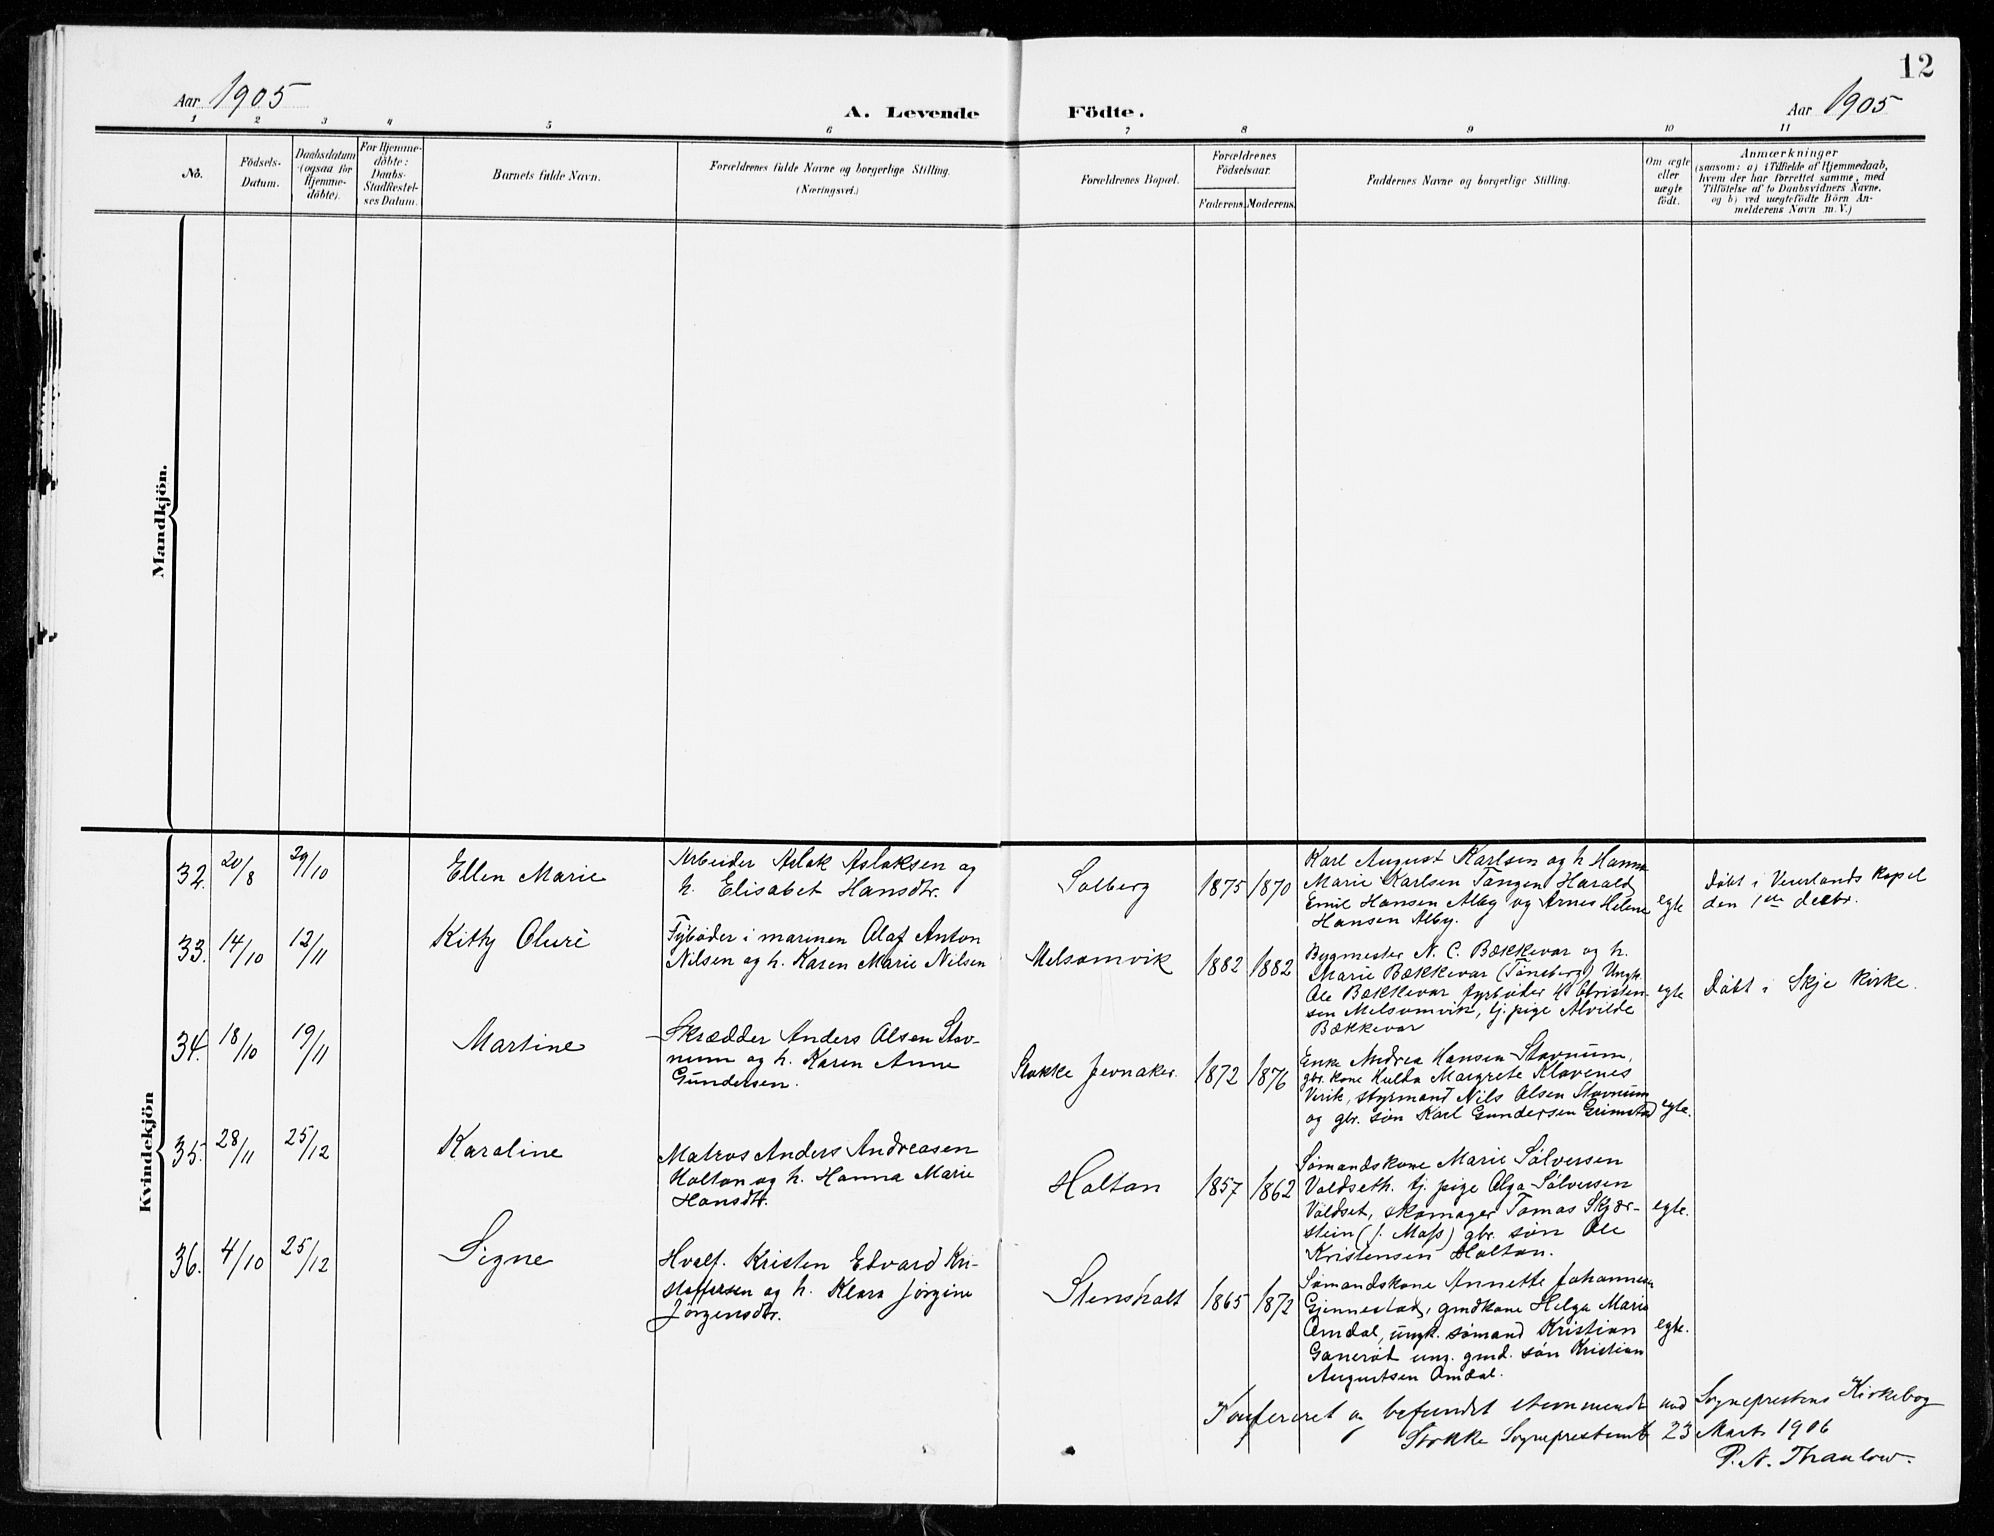 12
Aar 1905
A. Levende Födte.
Aar 1905
1 2 3 4 5 6 7 8 9 10 11
No.
Födsels-
Datum.
Daabsdatum
(ogsaa for
Hjemme-
döbte).
For Hjemme-
döbte:
Daabs-
Stadfæstel-
ses Datum.
Barnets fulde Navn.
Forældrenes fulde Navne og borgerlige Stilling.
(Næringsvei.)
Forældrenes Bopæl.
Forældrenes
Födselsaar.
Faderens. Moderens.
Faddernes Navne og borgerlige Stilling.
Om ægte
eller
uægte
födt.
Anmærkninger
(saasom: a) i Tilfælde af Hjemmedaab,
hvem der har forrettet samme, med
Tilföielse af to Daabsvidners Navne,
og b) ved uægtefödte Börn An-
melderens Navn m. V.)
Mandkjön.
Kvindekjön
32. 20/8 29/10
Ellen Marie
Arbeider Aslak Aslaksen og
h. Elisabet Hansdtr.
Solberg
1875 1870
Karl August Karlsen og h. Hanna
Marie Karlsen Tangen Harald
Emil Hansen Alby og Arnes Helene
Hansen Alby.
egte
Døbt i Veierlands Kapel
den 1ste decbr.
33. 14/10 12/11
Kitty Oluri
Fyrbøder i marinen Olaf Anton
Nilsen og h. Karen Marie Nilsen
Melsomvik
1882 1882
Bygmester N. C. Bækkevar og h.
Marie Bækkevar (Tønsberg) Ungk.
Ole Bækkevar fyrbøder Christen-
sen Melsomvik, tj. pige Alvilde
Bækkevar
egte
Døbt i Skje Kirke.
34. 18/10 19/11
Martine
Skrædder Anders Olsen Stav-
num og h. Karen Anne
Gundersen.
Stokke Jevnaker.
1872 1876
Enke Andrea Hansen Stavnum,
gbr. kone Hulda Margrete Klavenes
Virik, styrmand Nils Olsen Stavnum
og gbr. søn Karl Gundersen Grimstad
egte.
35. 28/11 25/12
Karoline
Matros Anders Andreasen
Holtan og h. Hanna Marie
Hansdtr.
Holtan
1857 1862
Sømandskone Marie Sølversen
Voldseth. tj. pige Olga Sølversen
Voldset, skomager Tomas Skjær-
stein (f. Moss) gbr. søn Ole
Kristensen Holtan.
egte.
36. 4/10 25/12
Signe
Hvalf. Kristen Edvard Kri-
stoffersen og h. Klara Jørgine
Jørgensdtr.
Stensholt
1865 1872
Sømandskone Annette Johannesen
Gjennestad, gmdkone Helga Marie
Omdal, ungk. sømand Kristian
Ganerød ung. gmd. søn Kristian
Augustsen Omdal.
egte.
Konfereret og befundet stemmende med Sogneprestens Kirkebog
Stokke Sogneprestembt 23 Marts 1906
P. N. Thaulow.